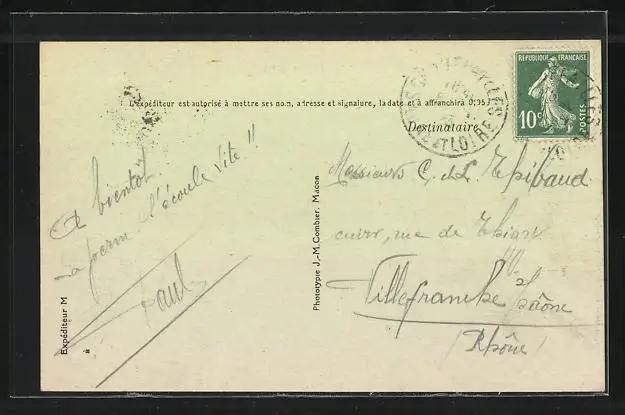 L'expéditeur est autorisé à mettre ses nom, adresse et signature, la date et à affranchir à 0,05
REPUBLIQUE FRANÇAISE
10c
POSTES
ET LOIRE
Destinataire
A bientôt
s'écoule vite !!
Paul
Expéditeur M
à
Phototypie J.-M. Combier, Macon
Messieurs C. et L. Thibaud
rue de Thizy
Villefranche s/ Saône
(Rhône)